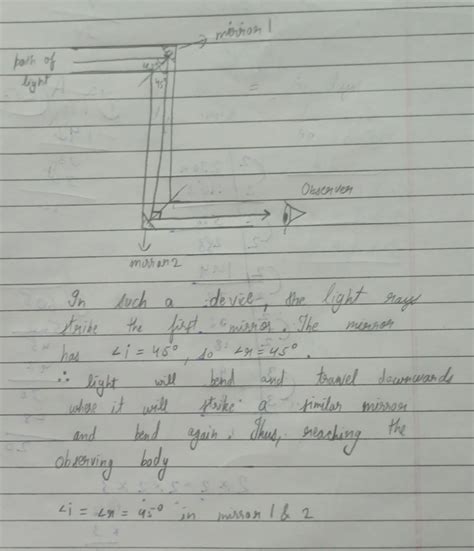 mirror 1
path of
light
45°
45°
Observer
mirror 2
In such a device, the light rays
strike the first mirror. The mirror
has ∠i = 45°, so ∠r = 45°.
∴ light will bend and travel downwards
where it will strike a similar mirror
and bend again. Thus, reaching the
observing body
∠i = ∠r = 45° in mirror 1 & 2